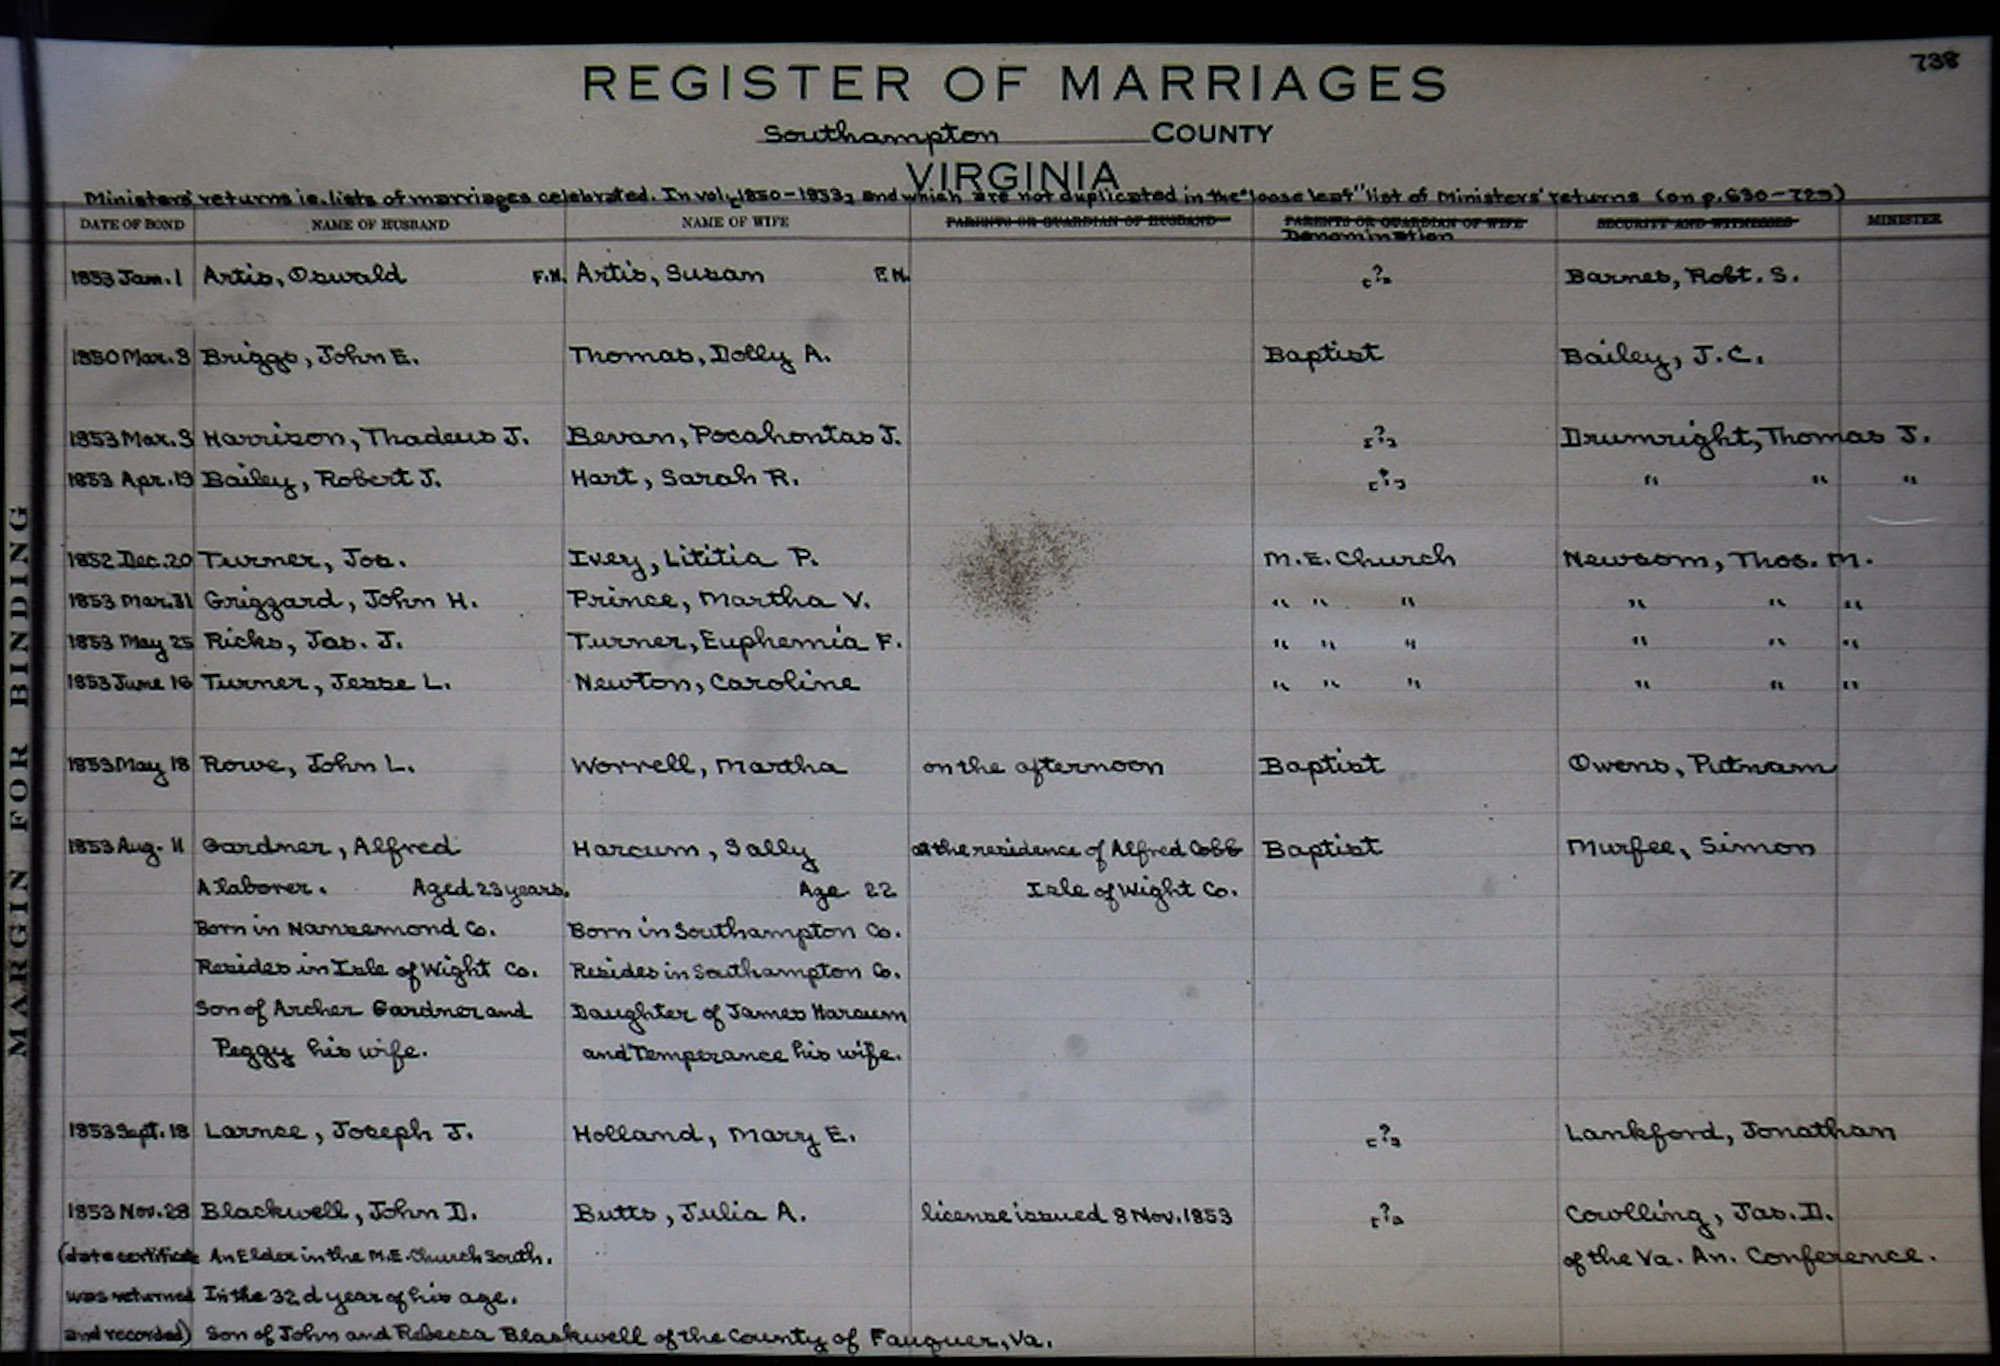 738
REGISTER OF MARRIAGES
Southampton COUNTY
VIRGINIA
Ministers' returns ie. lists of marriages celebrated. In vol. 1850-1853, and which are not duplicated in the "loose leaf" list of Ministers' returns (on p. 690-729)
DATE OF BOND NAME OF HUSBAND NAME OF WIFE PARENTS OR GUARDIAN OF HUSBAND PARENTS OR GUARDIAN OF WIFE SECURITY AND WITNESSES MINISTER
Denomination
1853 Jan. 1 Artis, Oswald F.N. Artis, Susan F.N. [?] Barnes, Robt. S.
1850 Mar. 3 Briggs, John E. Thomas, Dolly A. Baptist Bailey, J.C.
1853 Mar. 3 Harrison, Thadeus J. Bevan, Pocahontas J. [?] Drumright, Thomas J.
1853 Apr. 19 Bailey, Robert J. Hart, Sarah R. [?] " " "
1852 Dec. 20 Turner, Jos. Ivey, Lititia P. M.E. Church Newsom, Thos. M.
1853 Mar. 31 Grizzard, John H. Prince, Martha V. " " " " " "
1853 May 25 Ricks, Jas. J. Turner, Euphemia F. " " " " " "
1853 June 16 Turner, Jesse L. Newton, Caroline " " " " " "
1853 May 18 Rowe, John L. Worrell, Martha on the afternoon Baptist Owens, Putnam
1853 Aug. 11 Gardner, Alfred Harcum, Sally at the residence of Alfred Cobb Baptist Murfee, Simon
A laborer. Aged 23 years. Age 22 Isle of Wight Co.
Born in Nansemond Co. Born in Southampton Co.
Resides in Isle of Wight Co. Resides in Southampton Co.
Son of Archer Gardner and Daughter of James Harcum
Peggy his wife. and Temperance his wife.
1853 Sept. 18 Larnce, Joseph J. Holland, Mary E. [?] Lankford, Jonathan
1853 Nov. 28 Blackwell, John D. Butts, Julia A. license issued 8 Nov. 1853 [?] Cowlling, Jas. D.
(date certificate An Elder in the M.E. Church South. of the Va. An. Conference.
was returned In the 32 d year of his age.
and recorded) Son of John and Rebecca Blackwell of the County of Fauquer, Va.
MARGIN FOR BINDING